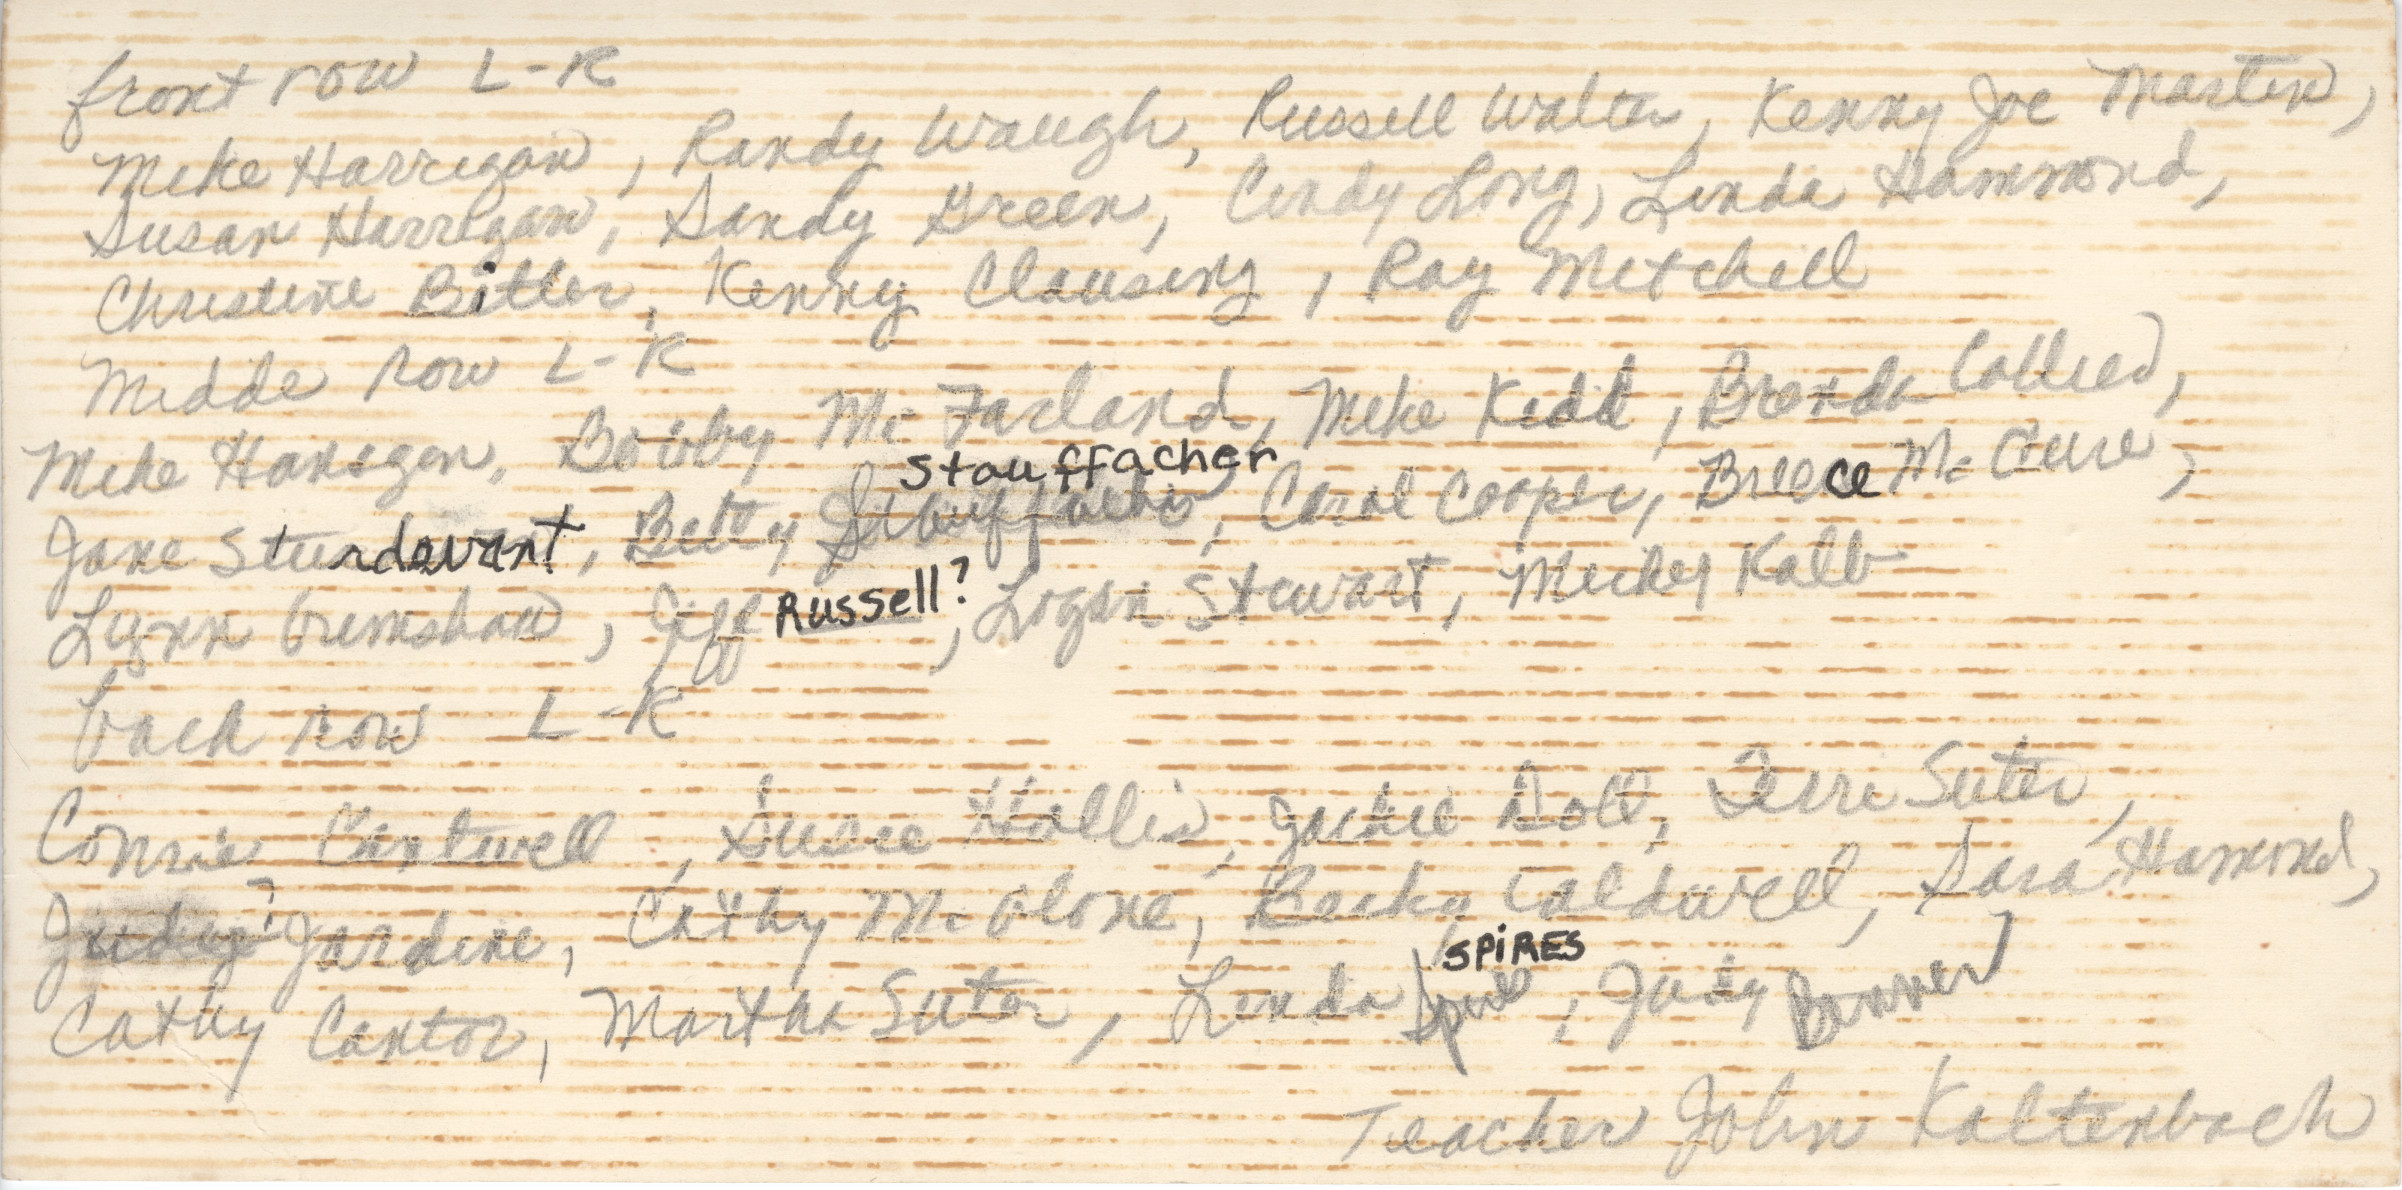 front row L-R
Mike Harrigan, Randy Waugh, Russell Walter, Kenny Joe Martin,
Susan Harrigan, Sandy Green, Cindy Long, Linda Hammond,
Christine Bitler, Kenny Clausing, Ray Mitchell
Midde row L-R
Mike Hanigan, Bobby McFarland, Mike Kidd, Brenda Collied,
Stauffacher
Jane Sturdevant, Betty Stauffacher, Carol Cooper, Breece McCure,
Lynn Grimshaw, Jiff Russell?, Logan Stewart, Mickey Kalb
back row L-R
Connie Cantwell, Susie Hollis, Jackie Doll, Terri Suter,
Judy? Jardine, Cathy McGlone, Becky Caldwell, Sara Hammond,
SPiRES
Cathy Cantor, Martha Suter, Linda, Judy Banner
Teacher John Kaltenbach